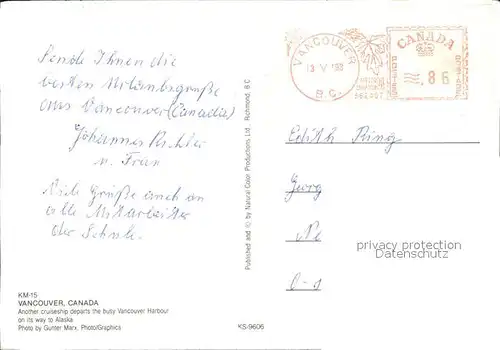 Sende Ihnen die
besten Urlaubsgrüße
aus Vancouver (Canada)
Johannes Richter
u. Frau
Viele Grüße auch an
alle Mitarbeiter
der Schule.
KM-15
VANCOUVER, CANADA
Another cruiseship departs the busy Vancouver Harbour
on its way to Alaska
Photo by Gunter Marx, Photo/Graphics
KS-9606
Published and © by Natural Color Productions Ltd., Richmond, B C
VANCOUVER
B.C.
CANADA
.86
Edith Ring
Georg
Ne
O-9
privacy protection
Datenschutz